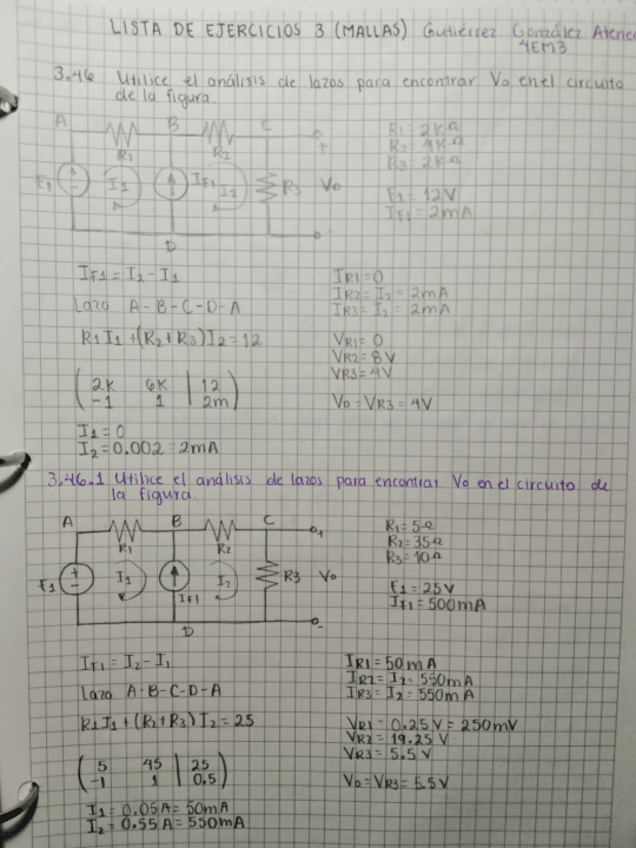 LISTA DE EJERCICIOS 3 (MALLAS) Gutiérrez González Atenea
4EM3
3.46 Utilice el análisis de lazos para encontrar Vo en el circuito
de la figura.
A B C
R1 R2
+
E1 + - I1 IF1 I2 R3 Vo
-
D
R1=2KΩ
R2=4KΩ
R3=2KΩ
E1=12V
IF1=2mA
IF1=I2-I1
Lazo A-B-C-D-A
R1I1+(R2+R3)I2=12
2K 6K | 12
-1 1 | 2m
I1=0
I2=0.002=2mA
IR1=0
IR2=I2=2mA
IR3=I2=2mA
VR1=0
VR2=8V
VR3=4V
Vo=VR3=4V
3.46.1 Utilice el análisis de lazos para encontrar Vo en el circuito de
la figura.
A B C
+
R1 R2
E1 + - I1 IF1 I2 R3 Vo
-
D
R1=5Ω
R2=35Ω
R3=10Ω
E1=25V
IF1=500mA
IF1=I2-I1
Lazo A-B-C-D-A
R1I1+(R2+R3)I2=25
5 45 | 25
-1 1 | 0.5
I1=0.05A=50mA
I2=0.55A=550mA
IR1=50mA
IR2=I2=550mA
IR3=I2=550mA
VR1=0.25V=250mV
VR2=19.25V
VR3=5.5V
Vo=VR3=5.5V